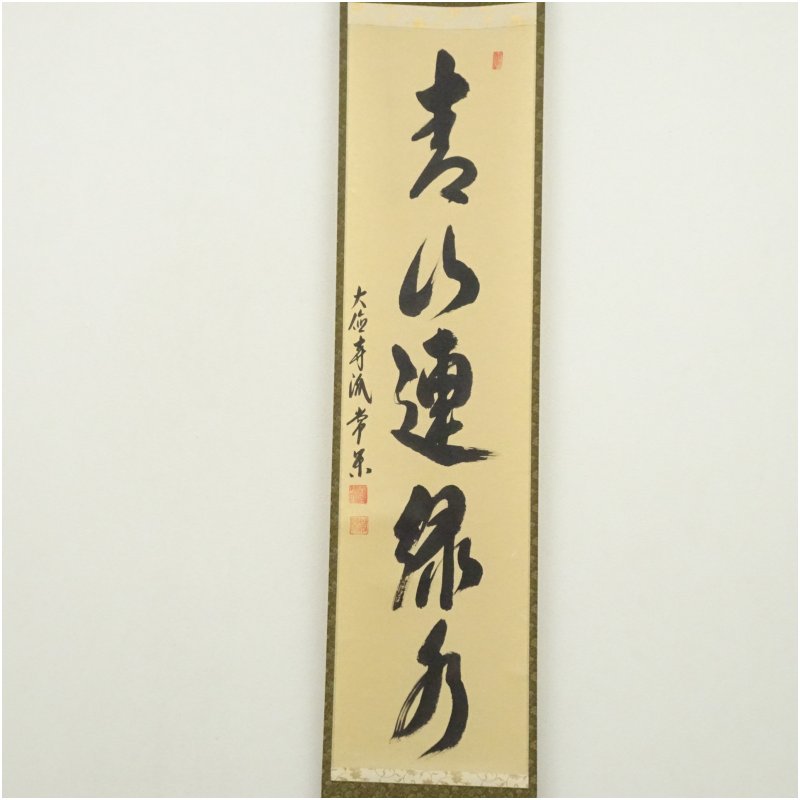 青山連緑水
大徳寺派常